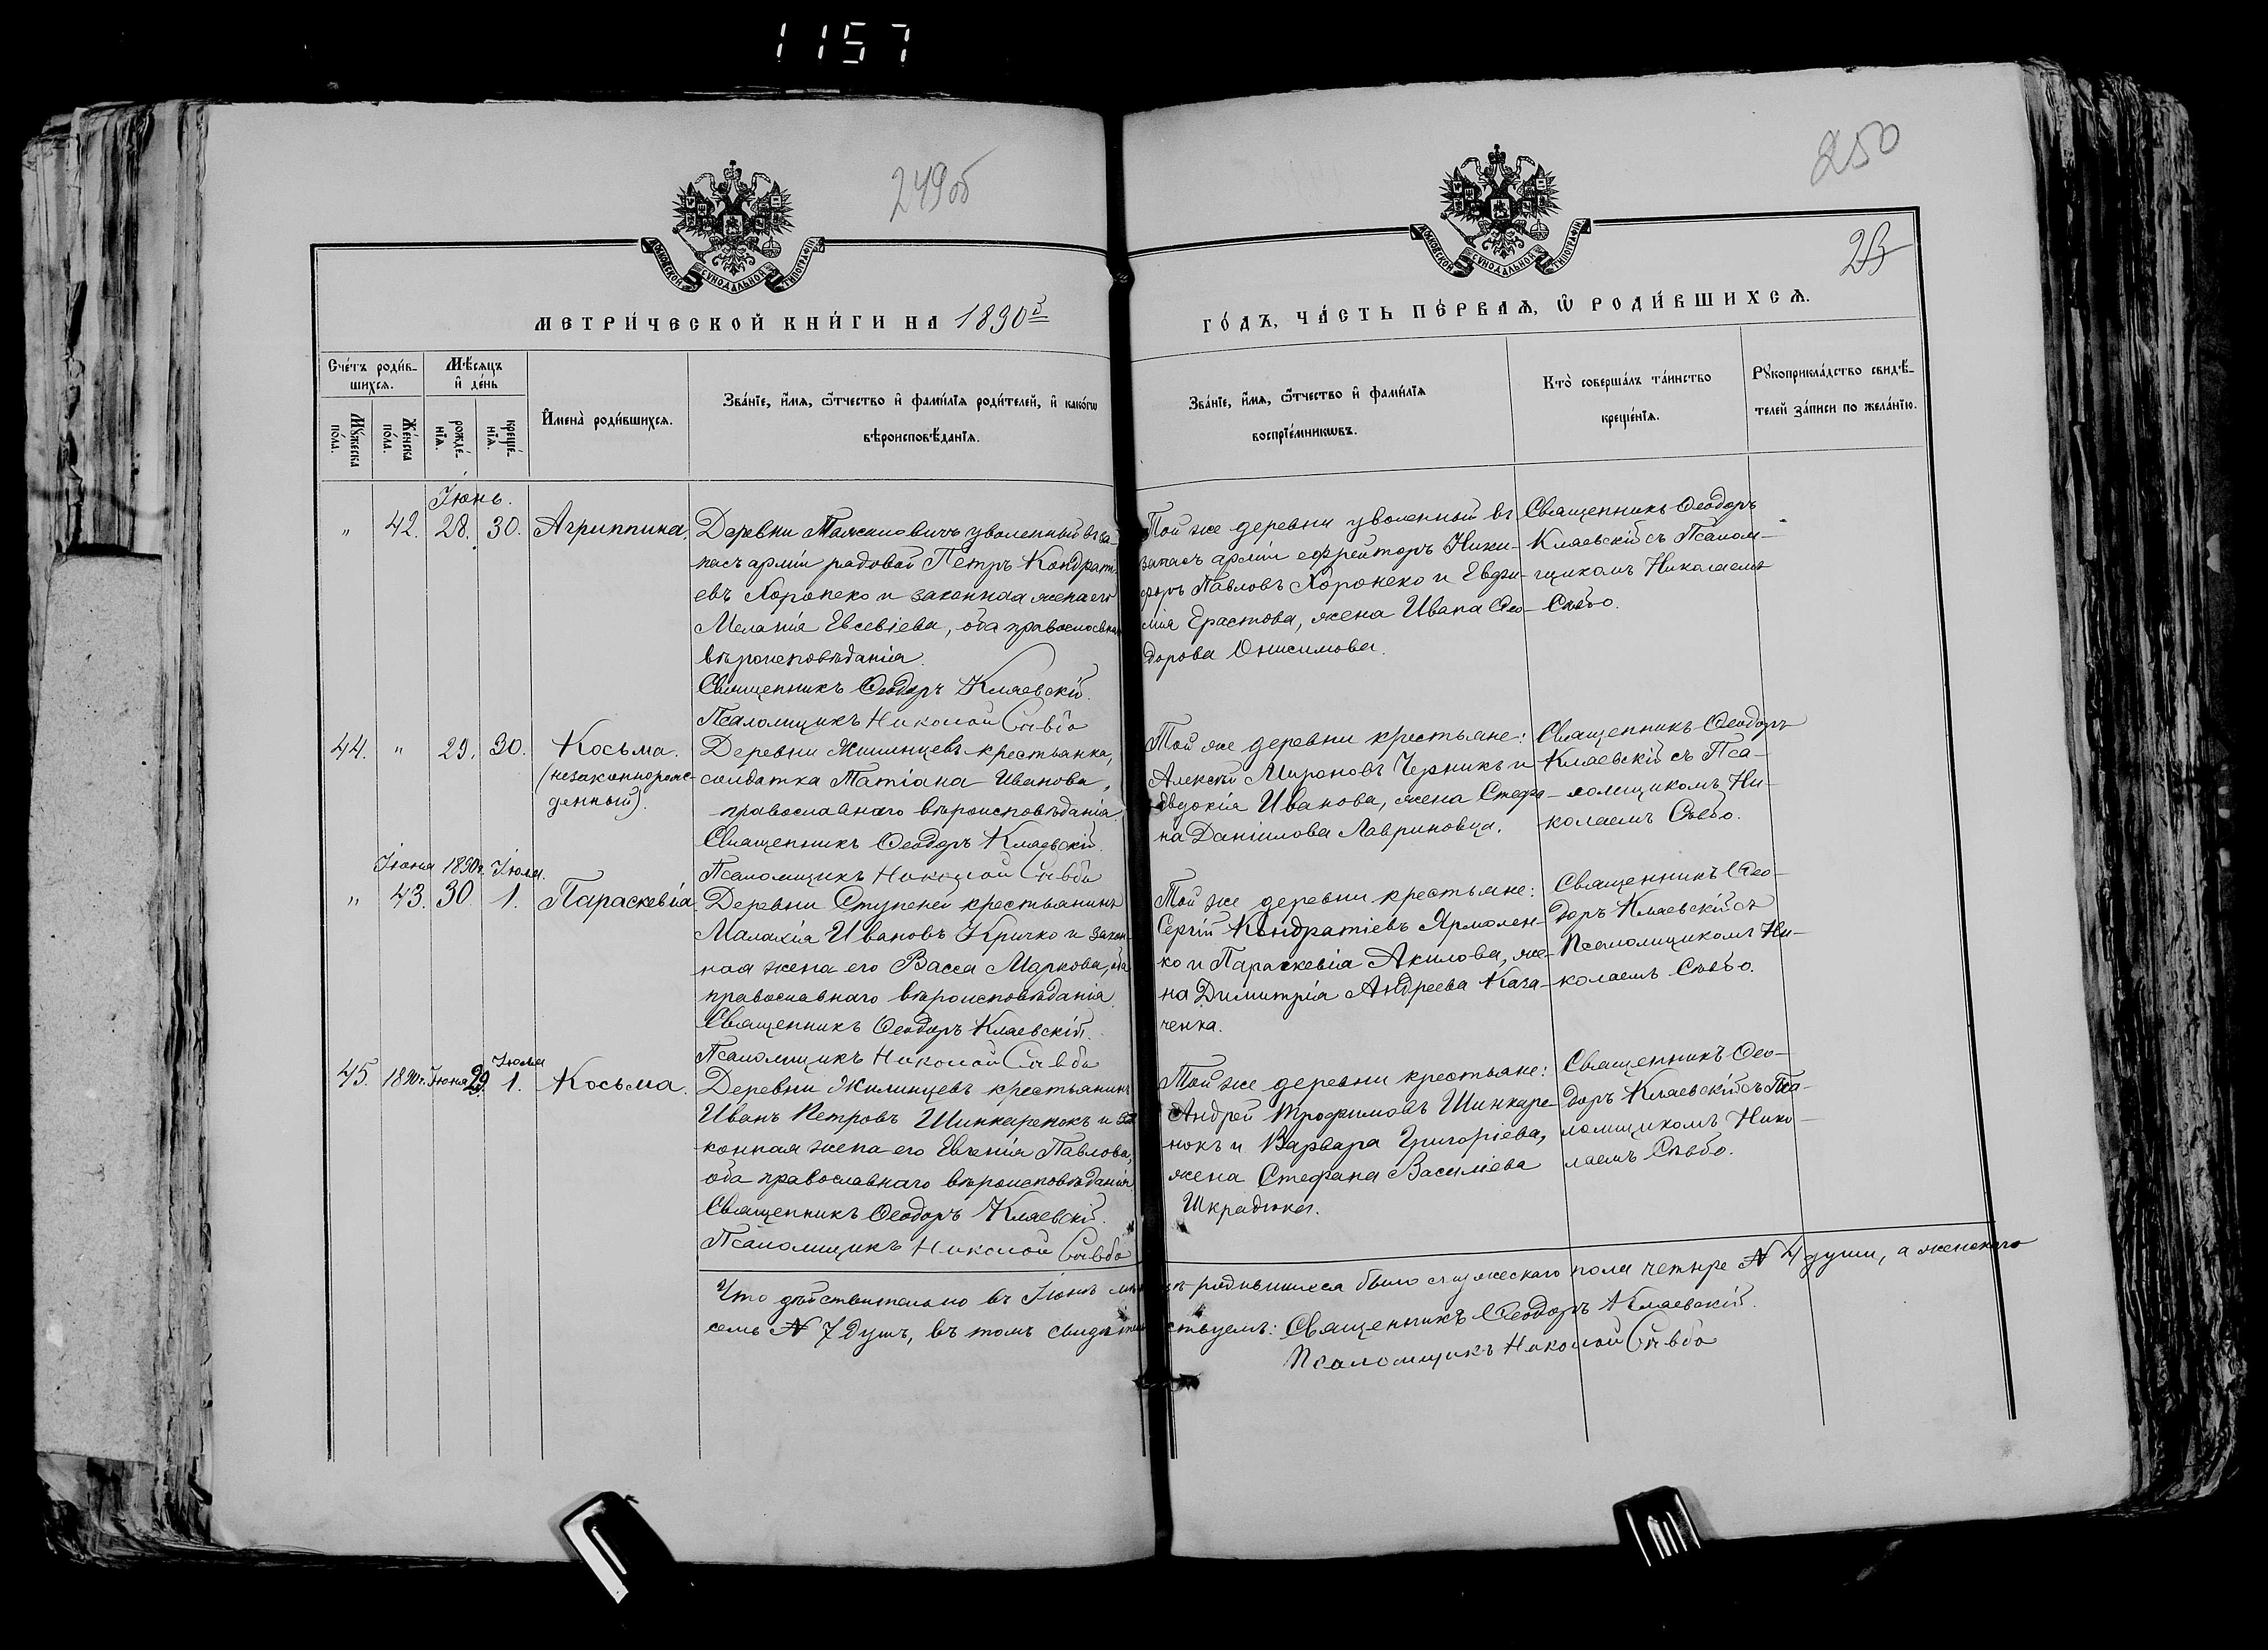 1157
249об
250
23
МОСКОВСКОЙ СѴНОДАЛЬНОЙ ТИПОГРАФІИ
МОСКОВСКОЙ СѴНОДАЛЬНОЙ ТИПОГРАФІИ
МЕТРИ́ЧЕСКОЙ КНИ́ГИ НА 1890й
ГО́ДЪ, ЧА́СТЬ ПЕ́РВАѦ, Ѽ РОДИ́ВШИХСѦ.
Сче́тъ роди́в-
шихсѧ.
Мѣ́сѧцъ
и҆ де́нь
Мꙋ́жеска
по́ла.
Же́нска
по́ла.
рожде́-
нїѧ.
креще́-
нїѧ.
И҆мена̀ роди́вшихсѧ.
Зва́нїе, и҆́мѧ, ѻ҆́тчество и҆ фами́лїѧ роди́телей, и҆ како́гѡ
вѣроисповѣ́данїѧ.
Зва́нїе, и҆́мѧ, ѻ҆́тчество и҆ фами́лїѧ
воспрїе́мникѡвъ.
Кто̀ соверша́лъ та́инство
креще́нїѧ.
Рꙋкоприкла́дство свидѣ́-
телей за́писи по жела́нїю.
Іюнь.
" 42. 28. 30. Агриппина
Деревни уволенный въ за-
пасъ арміи рядовой Петръ Кондрать-
евъ Хоронеко и законная жена его
Меланія Евсевіева, оба православнаго
вѣроисповѣданія.
Священникъ Ѳеодоръ Кляевскій.
Псаломщикъ Николай Съвбо
Той же деревни уволенный въ
запасъ арміи ефрейторъ Ники-
форъ Павловъ Хоронеко и Евфи-
мія Ерастова, жена Ивана Ѳео-
дорова Онисимова.
Священникъ Ѳеодоръ
Кляевскій съ Псалом-
щикомъ Николаемъ
Съвбо.
44. " 29. 30. Косьма.
(незаконнорож-
денный).
Деревни Жилинцевъ крестьянка,
солдатка Татіана Иванова,
православнаго вѣроисповѣданія.
Священникъ Ѳеодоръ Кляевскій.
Псаломщикъ Николай Съвбо
Той же деревни крестьяне:
Алексій Мироновъ Черникъ и
Евдокія Иванова, жена Стефа-
на Данилова Лавриновца.
Священникъ Ѳеодоръ
Кляевскій съ Пса-
ломщикомъ Ни-
колаемъ Съвбо.
Іюня 1890г. Іюля.
" 43. 30 1. Параскевія
Деревни Ступеней крестьянинъ
Малахія Ивановъ Кричко и закон-
ная жена его Васса Маркова, оба
православнаго вѣроисповѣданія.
Священникъ Ѳеодоръ Кляевскій.
Псаломщикъ Николай Съвбо
Той же деревни крестьяне:
Сергій Кондратіевъ Ярмолен-
ко и Параскевія Акилова, же-
на Димитрія Андреева Каза-
ченка.
Священникъ Ѳео-
доръ Кляевскій съ
Псаломщикомъ Ни-
колаемъ Съвбо.
Іюля
45. 1890г. Іюня 29. 1. Косьма.
Деревни Жилинцевъ крестьянинъ
Иванъ Петровъ Шинкаренокъ и за-
конная жена его Евгенія Павлова,
оба православнаго вѣроисповѣданія.
Священникъ Ѳеодоръ Кляевскій.
Псаломщикъ Николай Съвбо
Той же деревни крестьяне:
Андрей Трофимовъ Шинкаре-
нокъ и Варвара Григоріева,
жена Стефана Василіева
Шкрадюка.
Священникъ Ѳео-
доръ Кляевскій съ Пса-
ломщикомъ Нико-
лаемъ Съвбо.
Что дѣйствительно въ Іюнѣ мѣсяцѣ родившихся было мужескаго пола четыре № 4 души, а женскаго
семь № 7 душъ, въ томъ свидѣтельствуемъ: Священникъ Ѳеодоръ Кляевскій.
Псаломщикъ Николай Съвбо